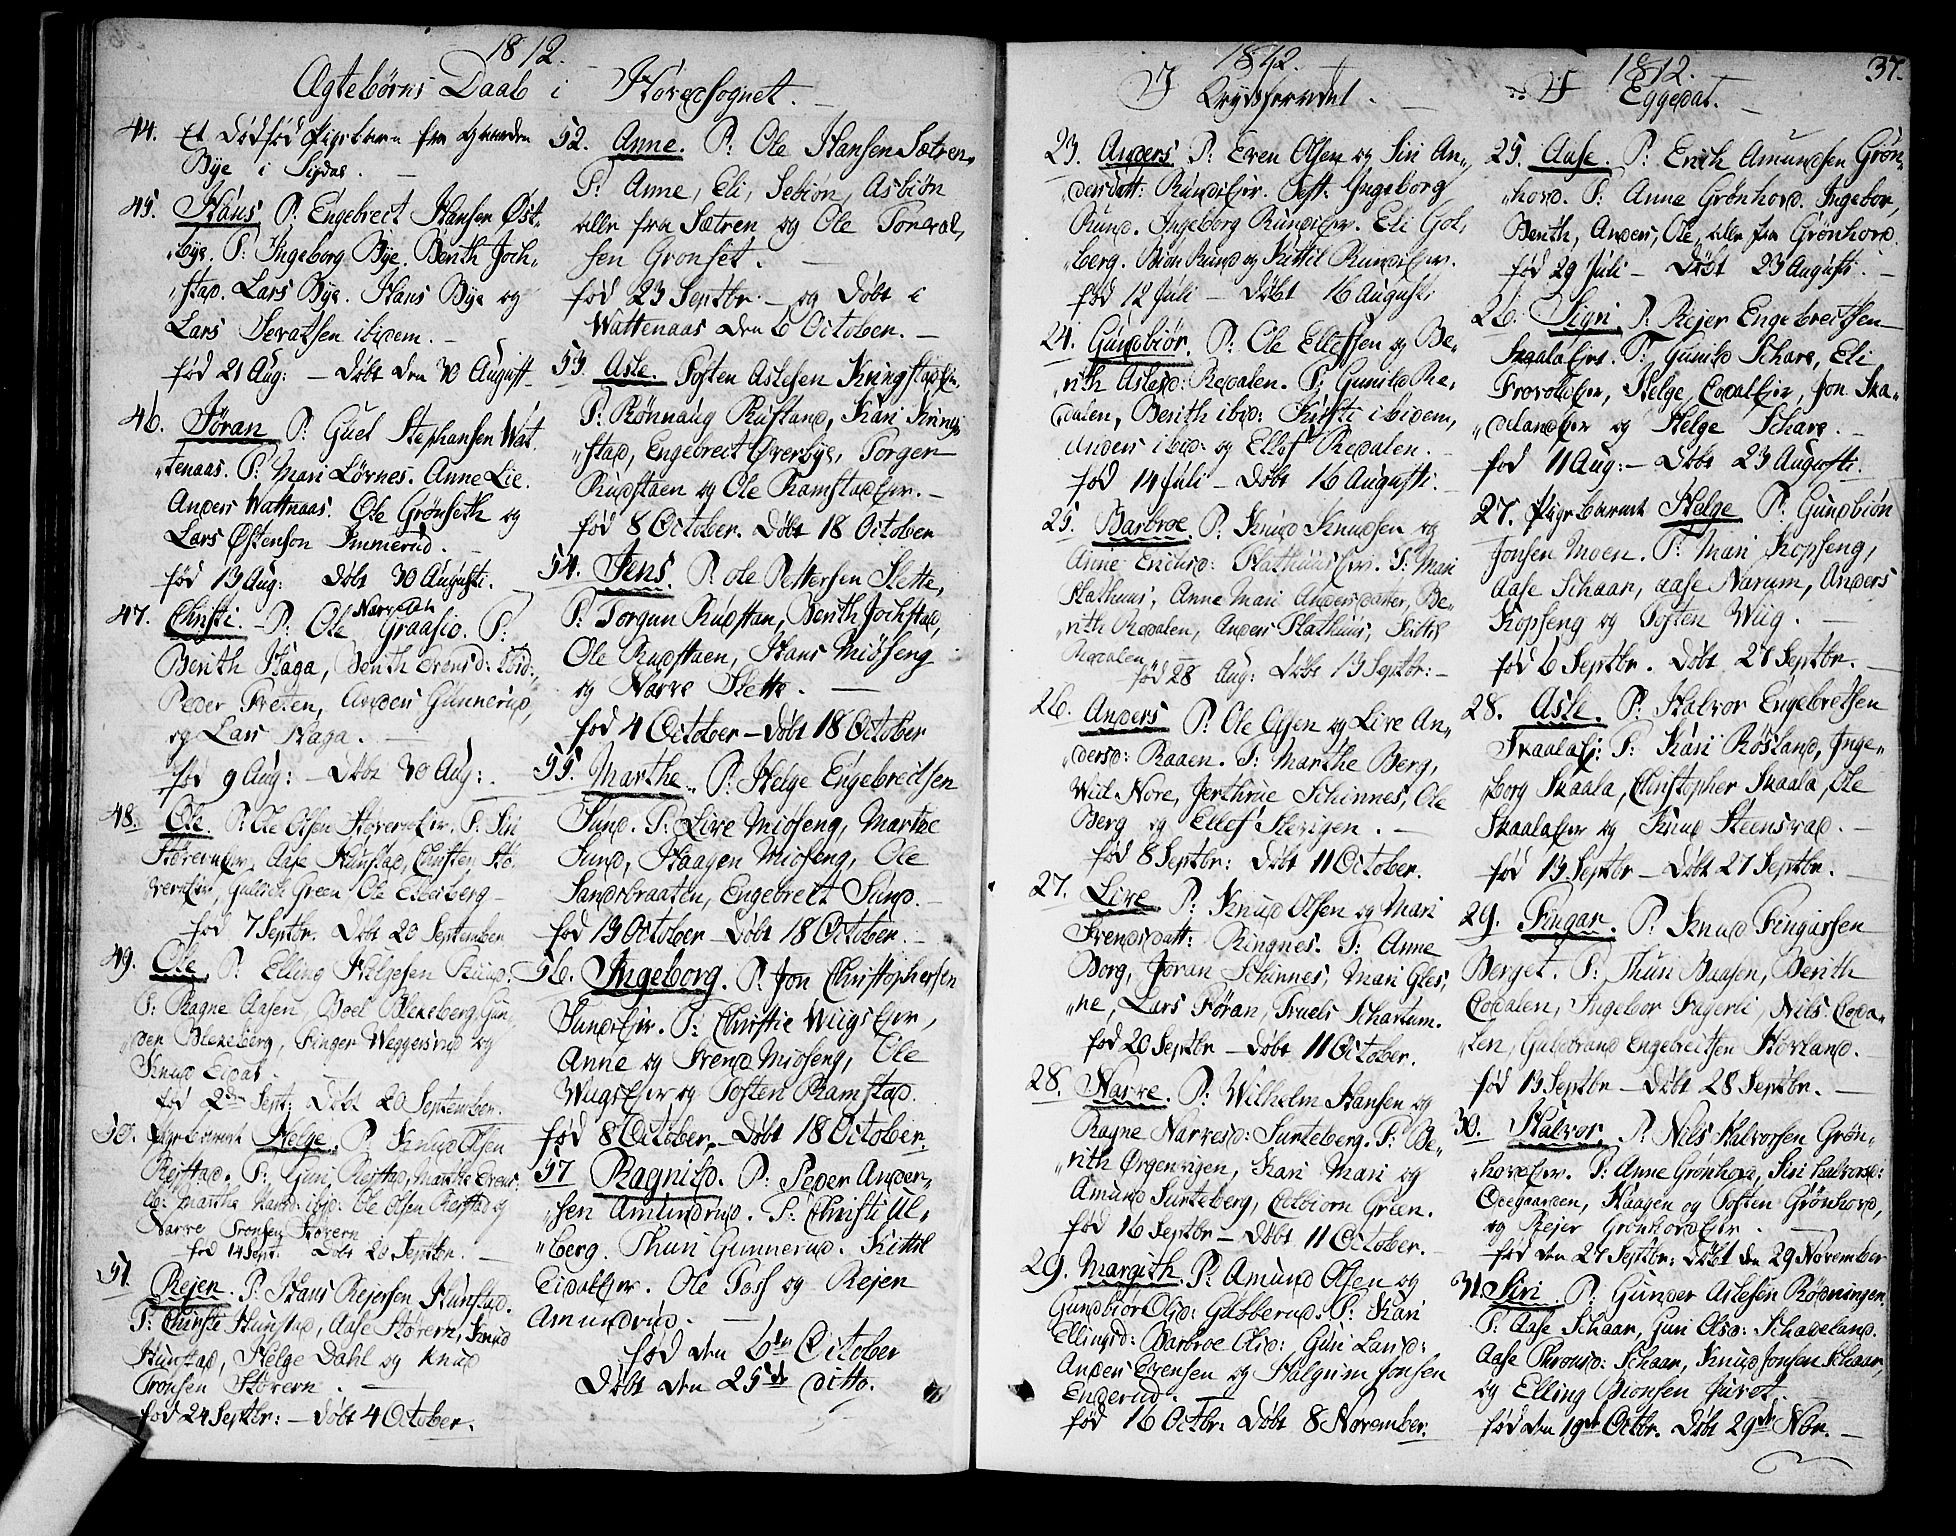 1812.
Ægtebørns Daab i Hovedsognet.
44. Et dødfød Pigebarn fra Gaarden
Bye i Sigdal.
45. Hans P. Engebrect Hansen Øst-
bye. F: Ingeborg Bye. Berith Joch-
stad. Lars Bye. Hans Bye og
Lars Sevatsen ibidem.
fød 21 Aug: — Døbt den 30 August
46. Jöran P: Guel Stephansen Wat-
tenaas. F: Mari Lörnes. Anne Lie.
Anders Wattnaas. Ole Grönseth og
Lars Østenson Immerud.
fød 13 Aug: Døbt 30 Augusti.
47. Christi. P: Ole Narvesen Graasid. F:
Berith Haga, Berith Evensd: ibid:,
Peder Freten, Anders Gunnerud,
og Lars Haga.
fød 9 Aug: — Døbt 30 Aug:
48. Ole. P: Ole Olsen Støvernejer. F: Siri
Støvernejer, Aase Hunstad, Christen Stö-
vernejer, Gullich Green Ole Elleberg
fød 7 Septbr. Døbt 20 September
49. Ole. P. Elling Helgesen Ruud.
F: Ragne Aasen, Boel Blekeberg, Gun-
der Blekeberg, Finger Weggersrud og
Knud Eidal.
fød 2den Sept: Døbt 20 September.
50. Pigebarnet Helge. P. Knud Olsen
Reistad. F: Guri Reistad, Marthe Evens-
d: Marthe Narvd: ibid: Ole Olsen Reistad og
Narve Tronsen Støvern
fød 14 Sept. Døbt 20 Septbr.
51. Rejer. P: Hans Rejersen Hunstad.
F: Christi Hunstad, Aase Støvern, Knud
Hunstad, Helge Dahl og Knud
Tronsen Støvern.
fød 24 Septbr: — Døbt 4 October.
52. Anne. P: Ole Hansen Sætren.
F: Anne, Eli, Sebiørn, Asbiörn
alle fra Sætren og Ole Torval-
sen Gronset.
fød 23 Septbr. og Døbt i
Wattenaas den 6 October.
53. Asle. Tosten Aslesen Kringstadejer.
F: Rönnaug Rustand, Kari Kring-
stad, Engebrect Øverbye, Torger
Rudstaen og Ole Ramstadejer.
fød 8 October. Døbt 18 October
54. Jens. P: Ole Pettersen Slette,
F: Torgun Rudstan, Berith Jochstad,
Ole Rudstaen, Hans Miöseng
og Narve Slette.
fød 4 October — Døbt 18 October
55. Marthe. P: Helge Engebrectsen
Sund. F: Live Miöseng, Marthe
Sund, Haagen Miöseng, Ole
Sandsbraaten, Engebrect Sund.
fød 13 October — Døbt 18 October.
56. Ingeborg. P. Jon Christophersen
Sundejer. F: Christie Wiigsejer,
Anne og Svend Miöseng, Ole
Wiigsejer og Tosten Ramstad.
fød 8 October — Døbt 18 October.
57 Ragnild. P: Peder Ander-
sen Amundrud. F: Christi Ul-
berg. Thuri Gunnerud. Kittil
Eidalejer. Ole Foss og Rejer
Amundrud.
fød den 6te October
Døbt den 25de ditto.
1812.
I Krydsherredet.
23. Anders P: Even Olsen og Siri An-
dersdatt: Rundejer. Test. Ingeborg
Rund. Ingeborg Rundejer. Eli Gol-
berg. Biön Rund og Kittil Rundejer.
fød 12 Juli — Døbt 16 Augusti
24. Gundbiør. P: Ole Ellefsen og Be-
rith Aslesd: Redalen. F: Gunild Re-
dalen, Berith ibid: Kirsti ibidem,
Anders ibid: og Ellef Redalen.
fød 14 Juli — Døbt 16 Augusti.
25. Barbroe P: Knud Knudsen og
Anne Ericksd: Slathuusejer. F: Mari
Slathuus, Anne Mari Andersdatter, Be-
rith Redalen, Anders Slathuus, Kittil
Redalen
fød 28 Aug: Døbt 13 Septbr:
26. Anders P: Ole Olsen og Live An-
dersd: Raaen. F: Marthe Berg,
Wiel Nore, Jerthrue Schinnes, Ole
Berg og Ellef Slevigen.
fød 8 Septbr: Døbt 11 October.
27. Live P: Knud Olsen og Mari
Svendsdatt: Ringnes. F: Anne
Borg, Jöran Schinnes, Mari Gles-
ne, Lars Föran, Truels Schartum.
fød 20 Septbr — Døbt 11 October.
28. Narve. P: Wilhelm Hansen og
Ragne Narvesd: Surteberg. F: Be-
rith Ørgenvigen, Kari Mari og
Amund Surteberg, Colbiorn Green.
fød 16 Septbr — Døbt 11 October.
29. Margith. P: Amund Olsen og
Gundbiör Olsd: Gulberud. F: Kari
Ellingsd: Barbroe Olsd: Guri Larsd:
Anders Evensen og Halgrim Jonsen
Enderud.
fød 16 Octbr. Døbt 8 November.
1812. 37.
I Eggedal.
25. Aase. P: Erich Amundsen Grön-
hovd. F: Anne Grønhovd. Ingebor,
Berith, Anders, Ole, alle fra Grönhovd.
fød 29 Juli — Døbt 23 Augusti.
26. Sigri. P: Rejer Engebreitsen
Skaalaejer. F: Gunild Schare, Eli
Frovoldejer, Helge Codalejer, Jon Ska-
delandejer og Helge Schare.
fød 11 Aug: — Døbt 23 Augusti.
27. Pigebarnet Helge P: Gundbiön
Jonsen Moen. F: Mari Kopseng,
Aase Schaar, Aase Narum, Anders
Kopseng og Tosten Wiig.
fød 6 Septbr. Døbt 27 Septbr.
28. Asle. P: Halvor Engebretsen
Skaalaej: F: Kari Røsland, Inge-
borg Skaala, Christopher Skaala, Ole
Skaalaejer og Knud Steensrud.
fød 13 Septbr — Døbt 27 Septbr.
29. Fingar. P: Knud Fingarsen
Berget. F: Thuri Baasen, Berith
Codalen, Ingebor Fagerli, Nils Coda-
len, Guldbrand Engebreitsen Hovland.
fød 13 Septbr — Døbt 28 Septbr.
30. Halvor. P: Nils Halvorsen Grøn-
hovdejer. F: Anne Grønhovd, Siri Halvorsd:
Odegaarden, Haagen og Tosten Grønhovd,
og Rejer Grønhovdejer.
fød den 27 Septbr: Døbt den 29 November
31. Siri. P: Gunder Aslesen Rödningen.
F: Aase Schaar, Guri Olsd: Schadeland.
Aase Thronsd: Schaar, Knud Jonsen Schaar,
og Elling Bionsen Juvet.
fød den 19de Octbr. Døbt 29de Nbr.